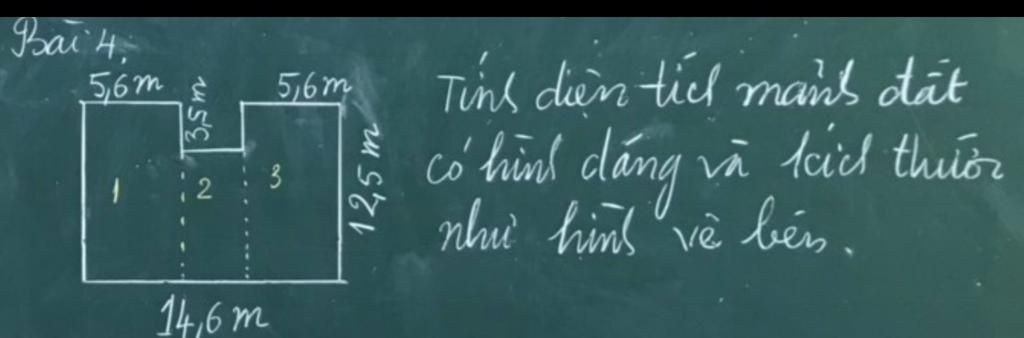 Bài 4.
5,6 m
3,5 m
5,6 m
1
2
3
12,5 m
14,6 m
Tính diện tích mảnh đất
có hình dáng và kích thước
như hình vẽ bên.